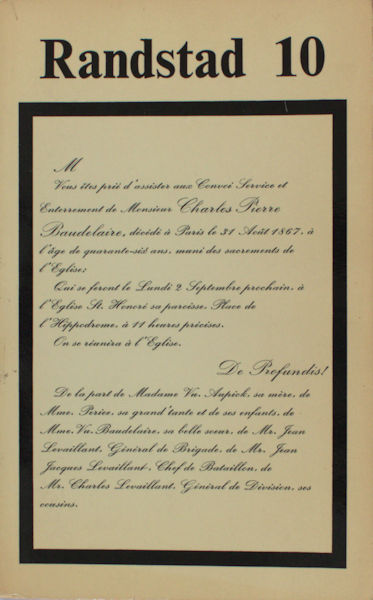 Randstad 10
M
Vous êtes prié d'assister aux Convoi Service et
Enterrement de Monsieur Charles Pierre
Baudelaire, décédé à Paris le 31 Août 1867, à
l'âge de quarante-six ans, muni des sacrements de
l'Eglise;
Qui se feront le Lundi 2 Septembre prochain, à
l'Eglise St. Honoré sa paroisse, Place de
l'Hippodrome, à 11 heures précises.
On se réunira à l'Eglise.
De Profundis!
De la part de Madame Vu. Aupick, sa mère, de
Mme. Perice, sa grand'tante et de ses enfants, de
Mme. Vu. Baudelaire, sa belle soeur, de Mr. Jean
Levaillant, Général de Brigade, de Mr. Jean
Jacques Levaillant, Chef de Bataillon, de
Mr. Charles Levaillant, Général de Division, ses
cousins.